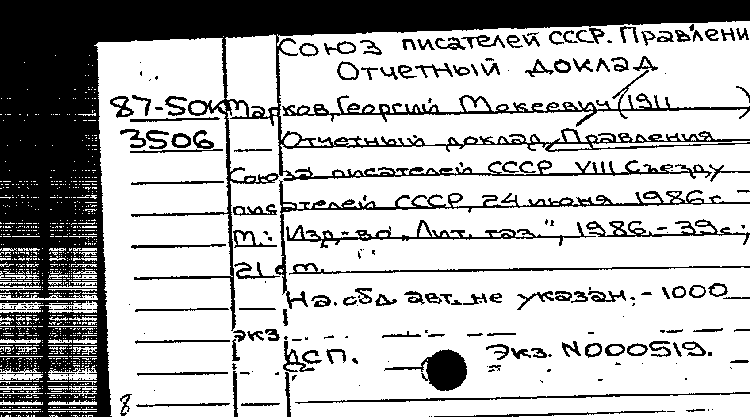 Союз писателей СССР. Правлени
Отчетный доклад
87-50к Марков, Георгий Мокеевич (1911 )
3506 Отчетный доклад Правления
Союза писателей СССР VIII Съезду
писателей СССР, 24 июня 1986 г. -
М.: Изд-во „Лит. газ.", 1986. - 39 с.;
21 см.
На обл. авт. не указан. - 1000
экз.
ДСП. Экз. N000519.
8